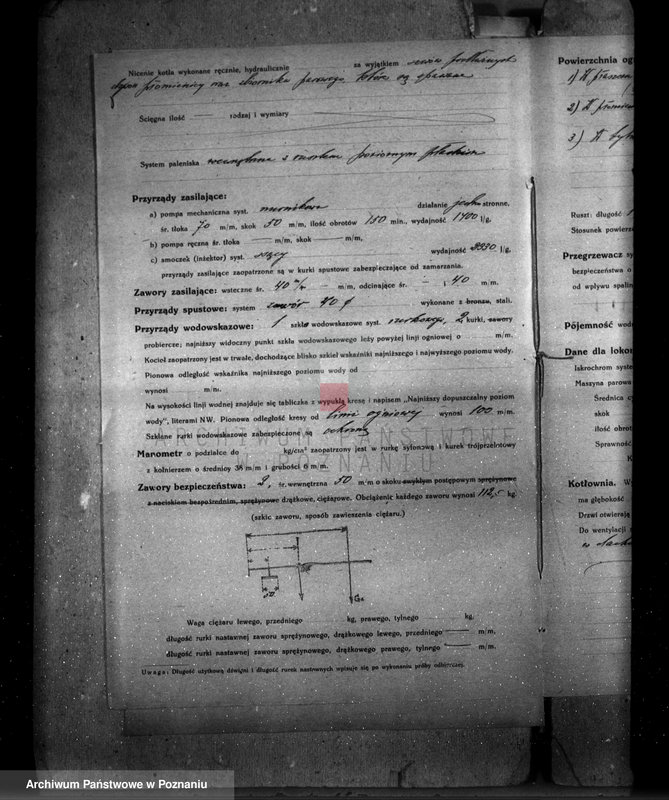 Nicenie kotła wykonane ręcznie, hydraulicznie za wyjątkiem
promienicy oraz zbornika parowego które są spawane
Ścięgna ilość — rodzaj i wymiary
System paleniska wewnętrzne z rusztem poziomym płaskim
Przyrządy zasilające:
a) pompa mechaniczna syst. nurnikowa działanie jedno stronne,
śr. tłoka 70 m/m, skok 50 m/m, ilość obrotów 150 min., wydajność 1400 l/g.
b) pompa ręczna śr. tłoka — m/m, skok — m/m,
c) smoczek (inżektor) syst. ssący wydajność 3330 l/g.
przyrządy zasilające zaopatrzone są w kurki spustowe zabezpieczające od zamarzania.
Zawory zasilające: wsteczne śr. 40 m/m, odcinające śr. — ; 40 m/m.
Przyrządy spustowe: system zawór 40 ϕ wykonane z bronzu, stali.
Przyrządy wodowskazowe: 1 szkło wodowskazowe syst. nurkowego, 2 kurki, zawory
probiercze; najniższy widoczny punkt szkła wodowskazowego leży powyżej linji ogniowej o m/m.
Kocioł zaopatrzony jest w trwałe, dochodzące blisko szkieł wskaźniki najniższego i najwyższego poziomu wody.
Pionowa odległość wskaźnika najniższego poziomu wody od
wynosi m/m.
Na wysokości linji wodnej znajduje się tabliczka z wypukłą kresą i napisem „Najniższy dopuszczalny poziom
wody", literami NW. Pionowa odległość kresy od linii ogniowej wynosi 100 m/m.
Szklane rurki wodowskazowe zabezpieczone są ochroną
Manometr o podziałce do kg/cm² zaopatrzony jest w rurkę syfonową i kurek trójprzelotowy
z kołnierzem o średnicy 38 m/m i grubości 6 m/m.
Zawory bezpieczeństwa: 2, śr. wewnętrzna 50 m/m o skoku zwykłym postępowym sprężynowe
z naciskiem bezpośrednim, sprężynowe drążkowe, ciężarowe. Obciążenie każdego zaworu wynosi 112,5 kg.
(szkic zaworu, sposób zawieszenia ciężaru.)
50
G₂
Waga ciężaru lewego, przedniego kg, prawego, tylnego kg,
długość rurki nastawnej zaworu sprężynowego, drążkowego lewego, przedniego — m/m,
długość rurki nastawnej zaworu sprężynowego, drążkowego prawego, tylnego — m/m.
Uwaga: Długość użytkową dźwigni i długość rurek nastawnych wpisuje się po wykonaniu próby odbiorczej.
Powierzchnia og
1) W
2) W
3) W
Ruszt: długość
Stosunek powierz
Przegrzewacz sy
bezpieczeństwa o
od wpływu spalin
Pójemność wod
Dane dla loko
Iskrochron syste
Maszyna parowa
Średnica c
skok
ilość obrot
Sprawność
K
Kotłownia. W
ma głębokość
Drzwi otwierają
Do wentylacji
ARCHIWUM PAŃSTWOWE
W POZNANIU
Archiwum Państwowe w Poznaniu